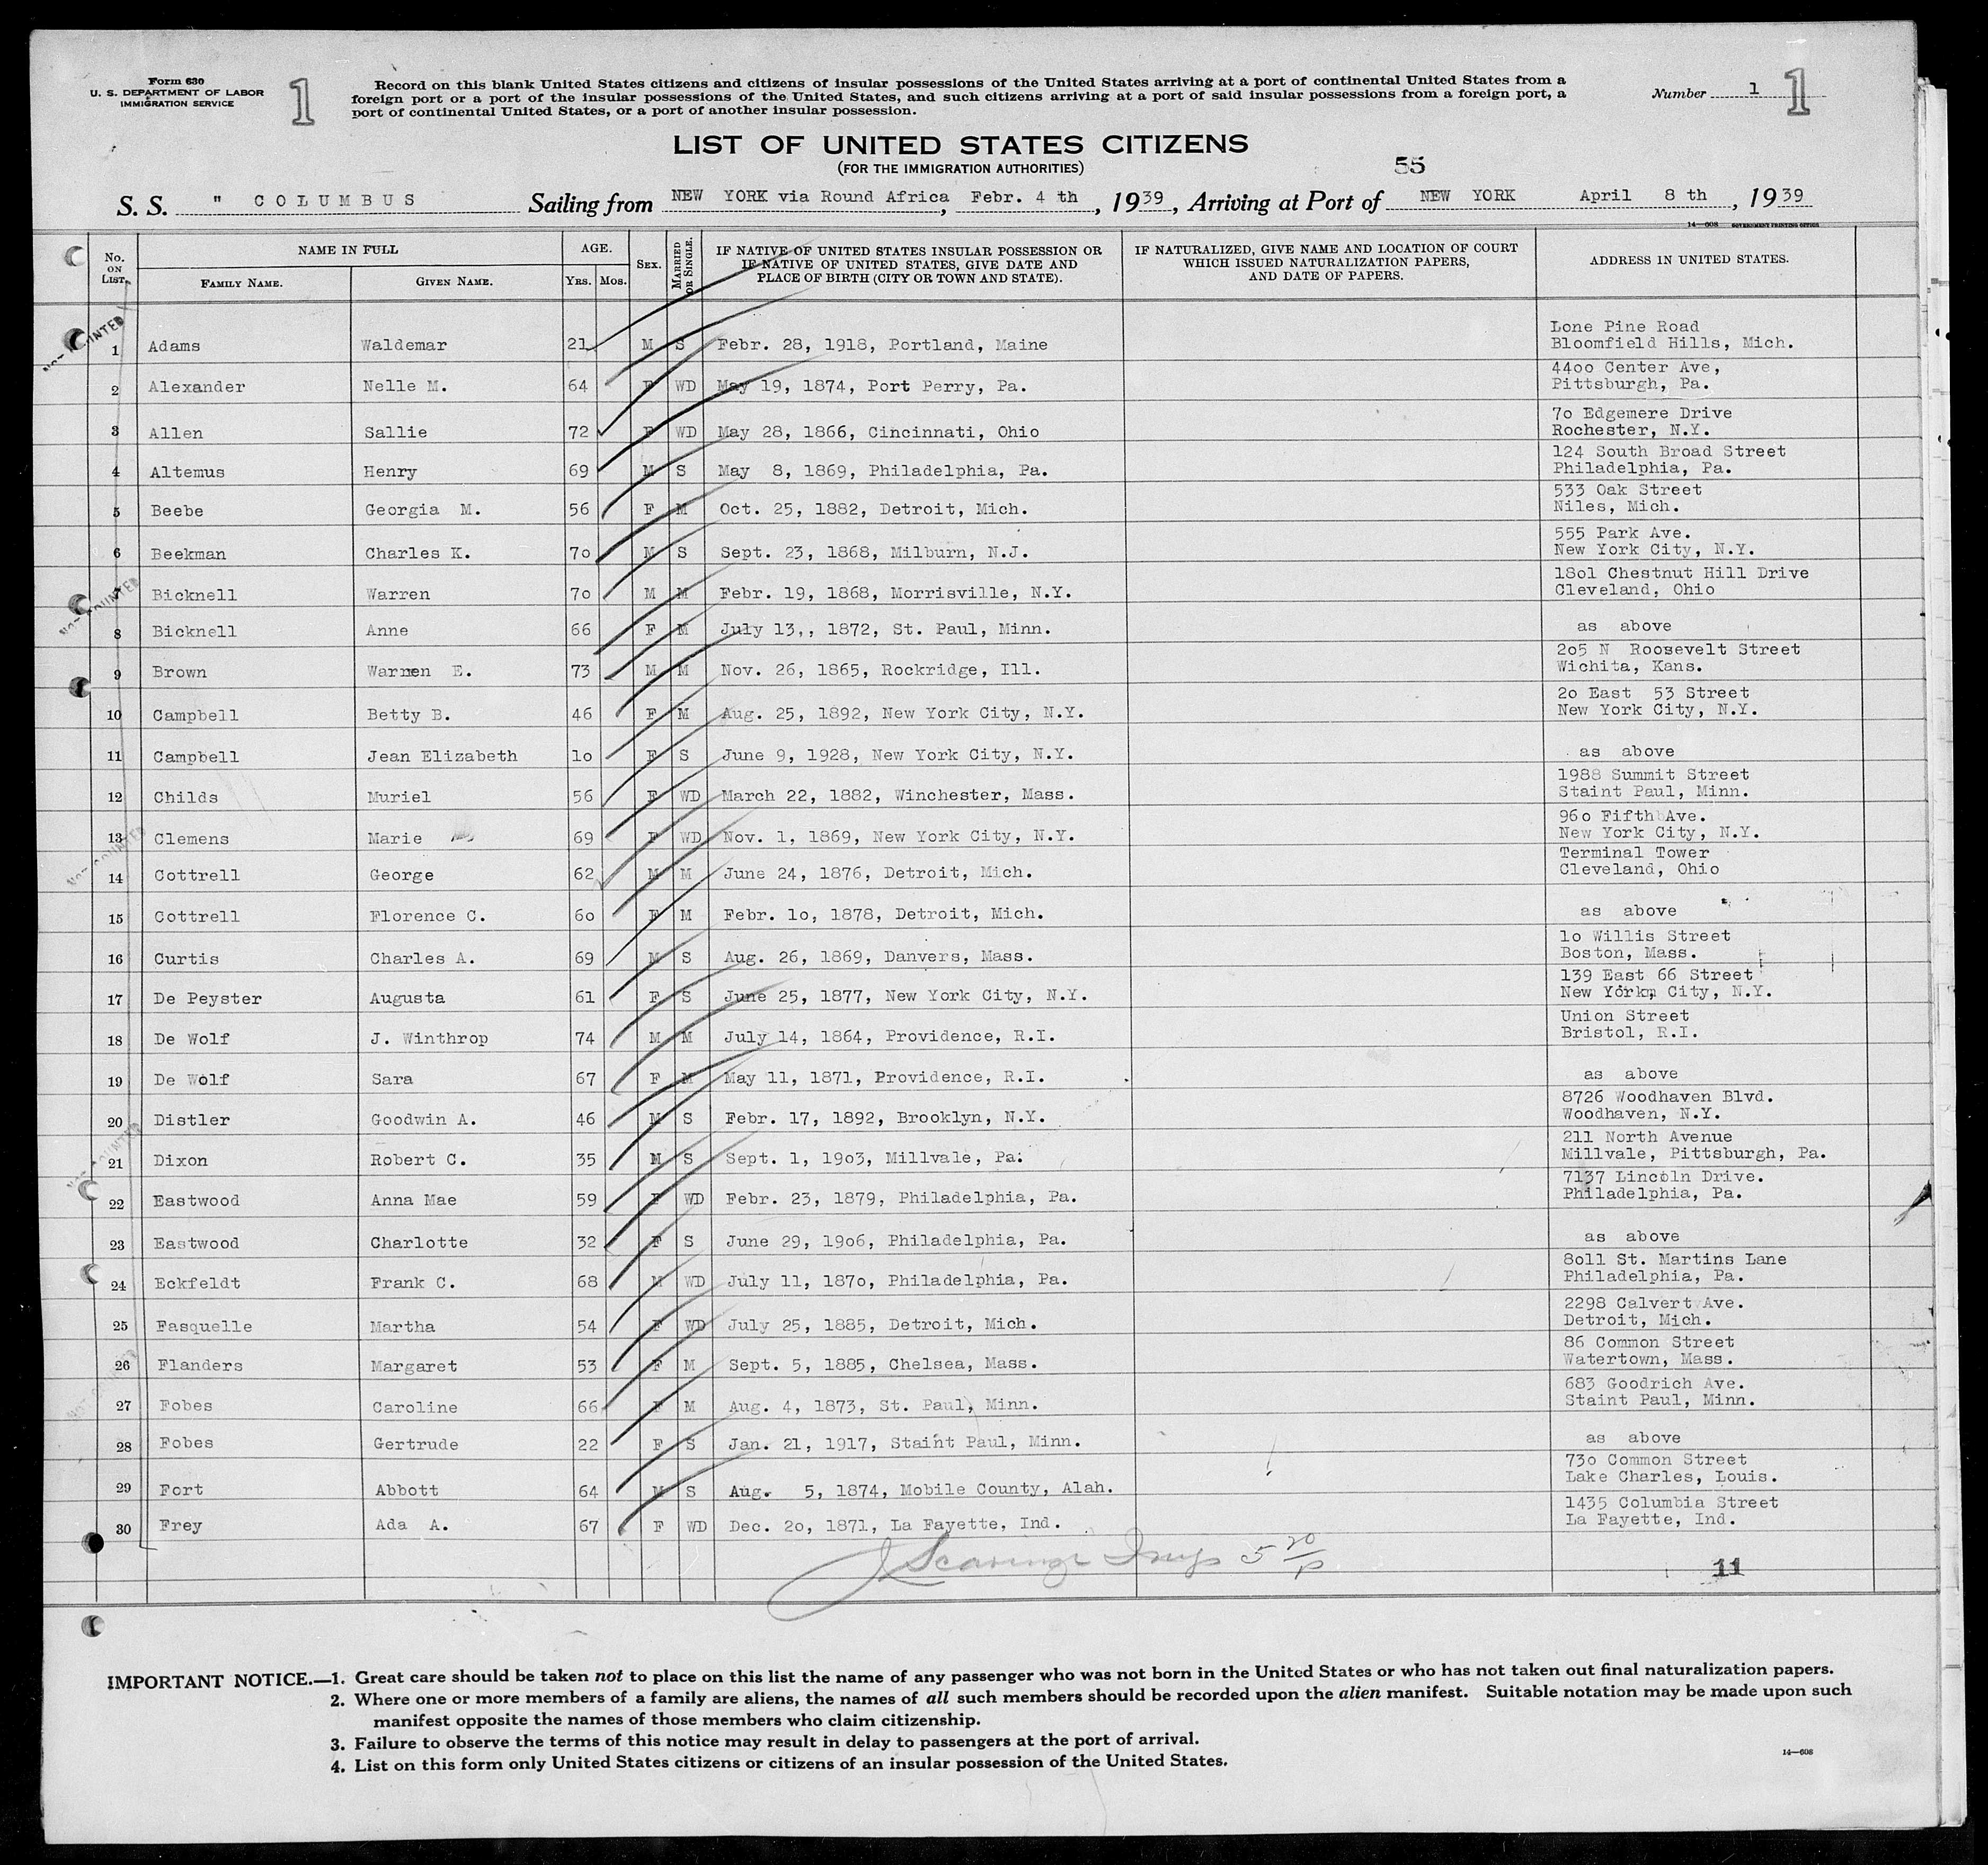 Form 630
U. S. DEPARTMENT OF LABOR
IMMIGRATION SERVICE
1
Record on this blank United States citizens and citizens of insular possessions of the United States arriving at a port of continental United States from a
foreign port or a port of the insular possessions of the United States, and such citizens arriving at a port of said insular possessions from a foreign port, a
port of continental United States, or a port of another insular possession.
Number 1
1
LIST OF UNITED STATES CITIZENS
(FOR THE IMMIGRATION AUTHORITIES)
55
S. S. " COLUMBUS Sailing from NEW YORK via Round Africa, Febr. 4 th, 1939, Arriving at Port of NEW YORK April 8 th, 1939
14—608 GOVERNMENT PRINTING OFFICE
No. ON LIST. NAME IN FULL FAMILY NAME. GIVEN NAME. AGE. YRS. MOS. SEX. MARRIED OR SINGLE. IF NATIVE OF UNITED STATES INSULAR POSSESSION OR IF NATIVE OF UNITED STATES, GIVE DATE AND PLACE OF BIRTH (CITY OR TOWN AND STATE). IF NATURALIZED, GIVE NAME AND LOCATION OF COURT WHICH ISSUED NATURALIZATION PAPERS, AND DATE OF PAPERS. ADDRESS IN UNITED STATES.
1 Adams Waldemar 21 M S Febr. 28, 1918, Portland, Maine Lone Pine Road Bloomfield Hills, Mich.
2 Alexander Nelle M. 64 F WD May 19, 1874, Port Perry, Pa. 44oo Center Ave, Pittsburgh, Pa.
3 Allen Sallie 72 F WD May 28, 1866, Cincinnati, Ohio 7o Edgemere Drive Rochester, N.Y.
4 Altemus Henry 69 M S May 8, 1869, Philadelphia, Pa. 124 South Broad Street Philadelphia, Pa.
5 Beebe Georgia M. 56 F M Oct. 25, 1882, Detroit, Mich. 533 Oak Street Niles, Mich.
6 Beekman Charles K. 7o M S Sept. 23, 1868, Milburn, N.J. 555 Park Ave. New York City, N.Y.
Bicknell Warren 7o M M Febr. 19, 1868, Morrisville, N.Y. 18o1 Chestnut Hill Drive Cleveland, Ohio
8 Bicknell Anne 66 F M July 13,, 1872, St. Paul, Minn. as above
9 Brown Warnen E. 73 M M Nov. 26, 1865, Rockridge, Ill. 2o5 N Roosevelt Street Wichita, Kans.
10 Campbell Betty B. 46 F M Aug. 25, 1892, New York City, N.Y. 2o East 53 Street New York City, N.Y.
11 Campbell Jean Elizabeth 1o F S June 9, 1928, New York City, N.Y. as above
12 Childs Muriel 56 F WD March 22, 1882, Winchester, Mass. 1988 Summit Street Staint Paul, Minn.
13 Clemens Marie 69 F WD Nov. 1, 1869, New York City, N.Y. 96o Fifth Ave. New York City, N.Y.
14 Cottrell George 62 M M June 24, 1876, Detroit, Mich. Terminal Tower Cleveland, Ohio
15 Cottrell Florence C. 6o F M Febr. 1o, 1878, Detroit, Mich. as above
16 Curtis Charles A. 69 M S Aug. 26, 1869, Danvers, Mass. 1o Willis Street Boston, Mass.
17 De Peyster Augusta 61 F S June 25, 1877, New York City, N.Y. 139 East 66 Street New York, City, N.Y.
18 De Wolf J. Winthrop 74 M M July 14, 1864, Providence, R.I. Union Street Bristol, R.I.
19 De Wolf Sara 67 F M May 11, 1871, Providence, R.I. as above
20 Distler Goodwin A. 46 M S Febr. 17, 1892, Brooklyn, N.Y. 8726 Woodhaven Blvd. Woodhaven, N.Y.
21 Dixon Robert C. 35 M S Sept. 1, 19o3, Millvale, Pa. 211 North Avenue Millvale, Pittsburgh, Pa.
22 Eastwood Anna Mae 59 F WD Febr. 23, 1879, Philadelphia, Pa. 7137 Lincoln Drive. Philadelphia, Pa.
23 Eastwood Charlotte 32 F S June 29, 19o6, Philadelphia, Pa. as above
24 Eckfeldt Frank C. 68 M WD July 11, 187o, Philadelphia, Pa. 8o11 St. Martins Lane Philadelphia, Pa.
25 Fasquelle Martha 54 F WD July 25, 1885, Detroit, Mich. 2298 Calvert Ave. Detroit, Mich.
26 Flanders Margaret 53 F M Sept. 5, 1885, Chelsea, Mass. 86 Common Street Watertown, Mass.
27 Fobes Caroline 66 F M Aug. 4, 1873, St. Paul, Minn. 683 Goodrich Ave. Staint Paul, Minn.
28 Fobes Gertrude 22 F S Jan. 21, 1917, Staint Paul, Minn. as above
29 Fort Abbott 64 M S Aug. 5, 1874, Mobile County, Alah. 73o Common Street Lake Charles, Louis.
30 Frey Ada A. 67 F WD Dec. 2o, 1871, La Fayette, Ind. 1435 Columbia Street La Fayette, Ind.
11
IMPORTANT NOTICE.—1. Great care should be taken not to place on this list the name of any passenger who was not born in the United States or who has not taken out final naturalization papers.
2. Where one or more members of a family are aliens, the names of all such members should be recorded upon the alien manifest. Suitable notation may be made upon such
manifest opposite the names of those members who claim citizenship.
3. Failure to observe the terms of this notice may result in delay to passengers at the port of arrival.
4. List on this form only United States citizens or citizens of an insular possession of the United States.
14—608